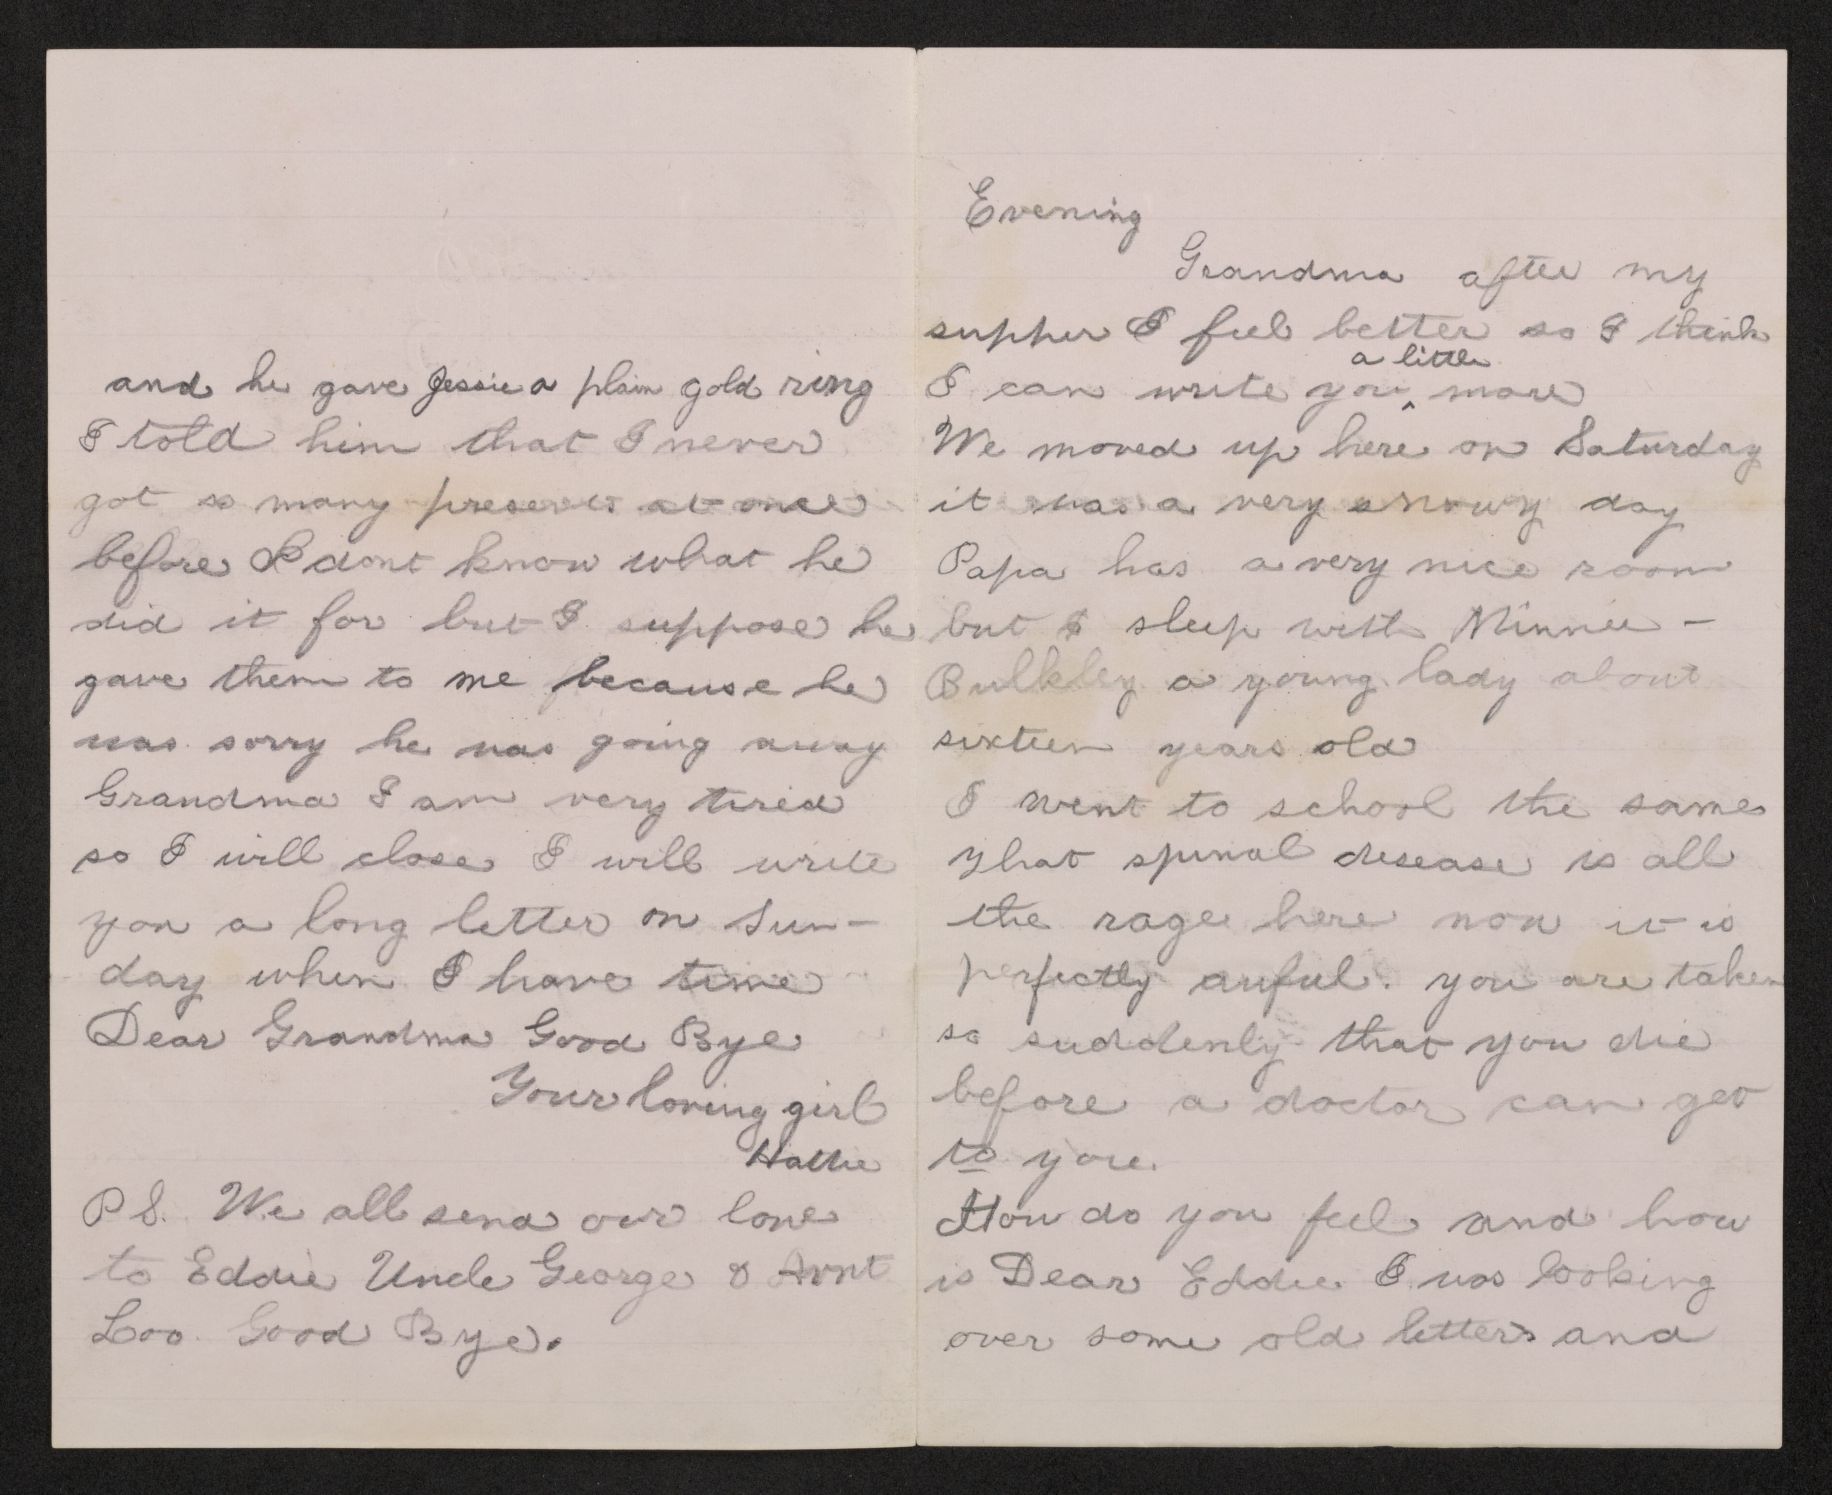 and he gave Jessie a plain gold ring
I told him that I never
got so many presents at once
before I dont know what he
did it for but I suppose he
gave them to me because he
was sorry he was going away
Grandma I am very tired
so I will close I will write
you a long letter on Sun-
day when I have time
Dear Grandma Good Bye
Your loving girl
Hattie
P S. We all send our love
to Eddie Uncle George & Aunt
Loo Good Bye.
Evening
Grandma after my
supper I feel better so I think
a little
I can write you ^ more
We moved up here on Saturday
it was a very snowy day
Papa has a very nice room
but I sleep with Minnie -
Bulkley a young lady about
sixteen years old
I went to school the same
That spinal disease is all
the rage here now it is
perfectly awful. you are taken
so suddenly that you die
before a doctor can get
to you.
How do you feel and how
is Dear Eddie. I was looking
over some old letters and